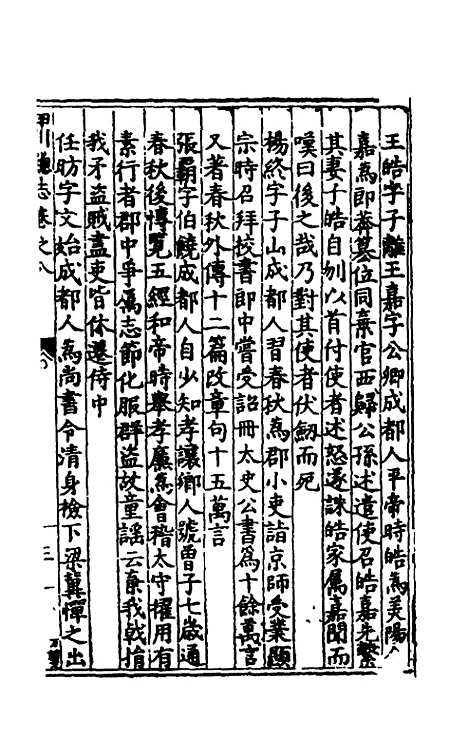 王皓字子離王嘉字公卿成都人平帝時皓為美陽人
嘉為郎莽慕位同棄官西歸公孫述遣使召皓嘉先繫
其妻子皓自刎以首付使者述怒遂誅皓家屬嘉聞而
嘆曰後之哉乃對其使者伏劒而死
楊終字子山成都人習春秋為郡小吏詣京師受業顯
宗時召拜校書郎中嘗受詔冊太史公書為十餘萬言
又著春秋外傳十二篇改章句十五萬言
張霸字伯饒成都人自少知孝讓鄉人號曾子七歲通
春秋後博覽五經和帝時舉孝廉為會稽太守擢用有
素行者郡中爭厲志節化服群盜故童謠云棄我戟捐
我矛盜賊盡吏皆休遷侍中
任昉字文始成都人為尚書令清身檢下梁冀憚之出
川總志卷之八
十三